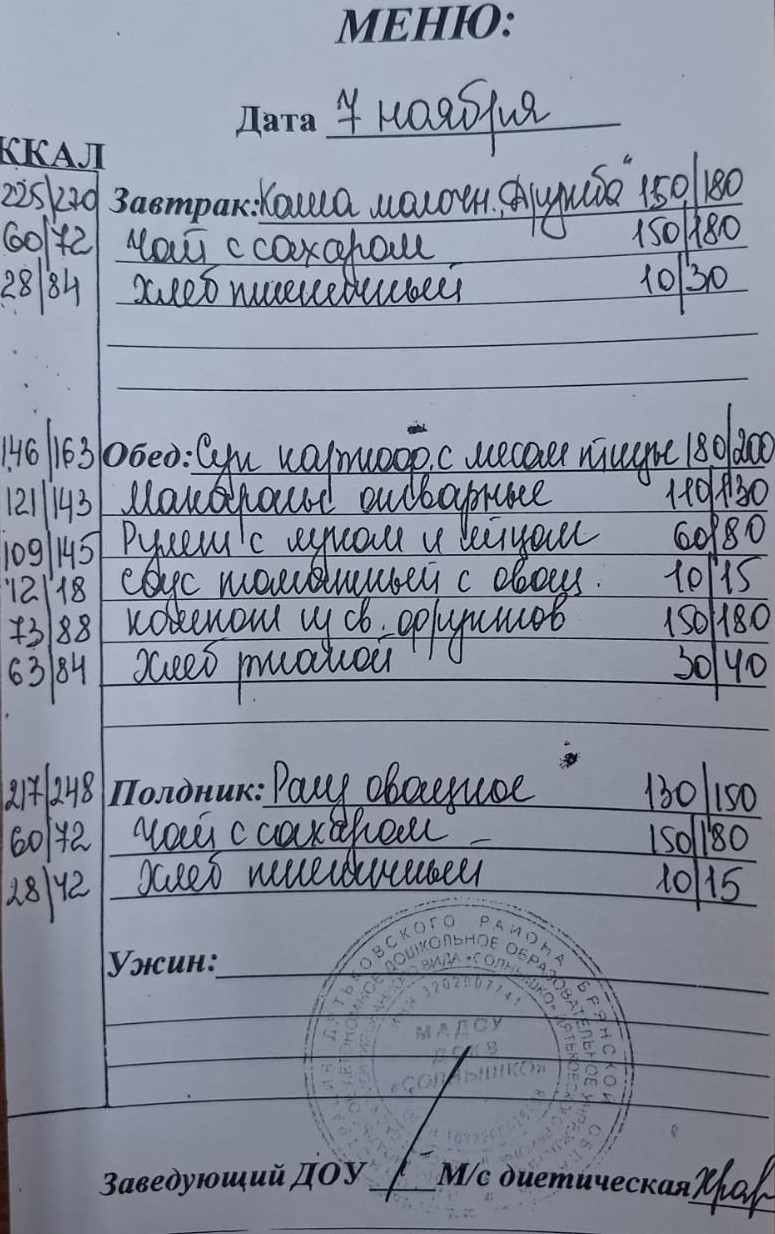 МЕНЮ:
Дата 7 ноября
ККАЛ
225/270 Завтрак: Каша молочн. "Дружба" 150/180
60/72 Чай с сахаром 150/180
28/84 Хлеб пшеничный 10/30
146/163 Обед: Суп картоф. с мясом птицы 180/200
121/143 Макароны отварные 110/130
109/145 Рулет с луком и яйцом 60/80
12/18 Соус томатный с овощ. 10/15
73/88 Компот из св. фруктов 150/180
63/84 Хлеб ржаной 30/40
217/248 Полдник: Рагу овощное 130/150
60/72 Чай с сахаром 150/180
28/42 Хлеб пшеничный 10/15
Ужин:
ДЯТЬКОВСКОГО РАЙОНА БРЯНСКОЙ
ДОШКОЛЬНОЕ ОБРАЗОВАТЕЛЬНОЕ
ВИДА «СОЛНЫШКО»
МАДОУ
«СОЛНЫШКО»
Заведующий ДОУ М/с диетическая